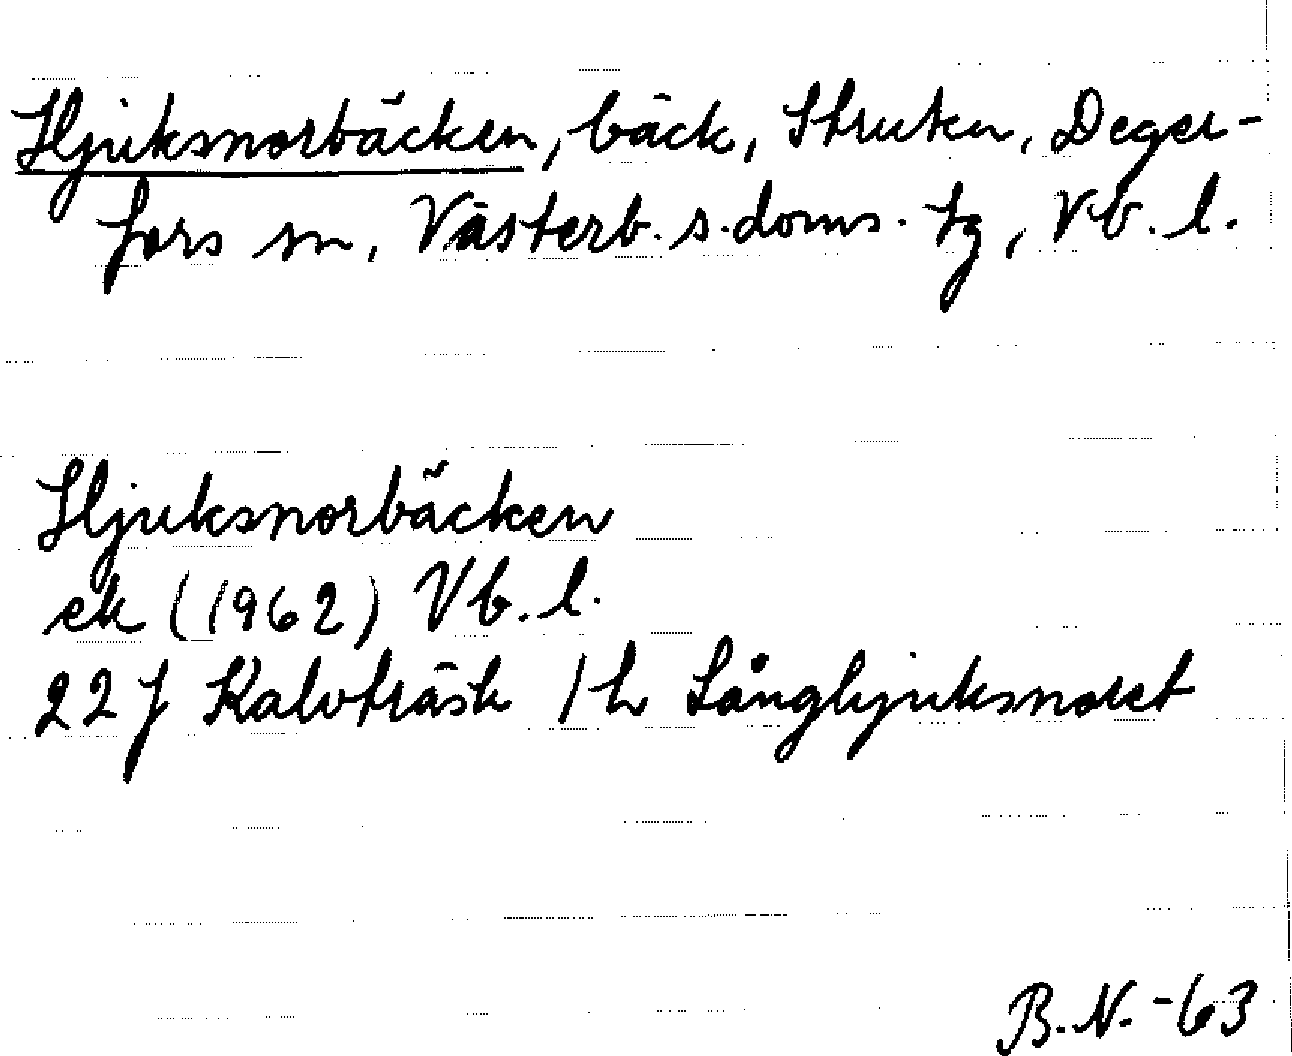 Hjuksnorbäcken, bäck, Struten, Deger-
fors sn, Västerb. s. doms. tg, Vb. l.
Hjuksnorbäcken
ek (1962) Vb. l.
22 J Kalvträsk 1 h Långhjuksnoret
B.N. -63